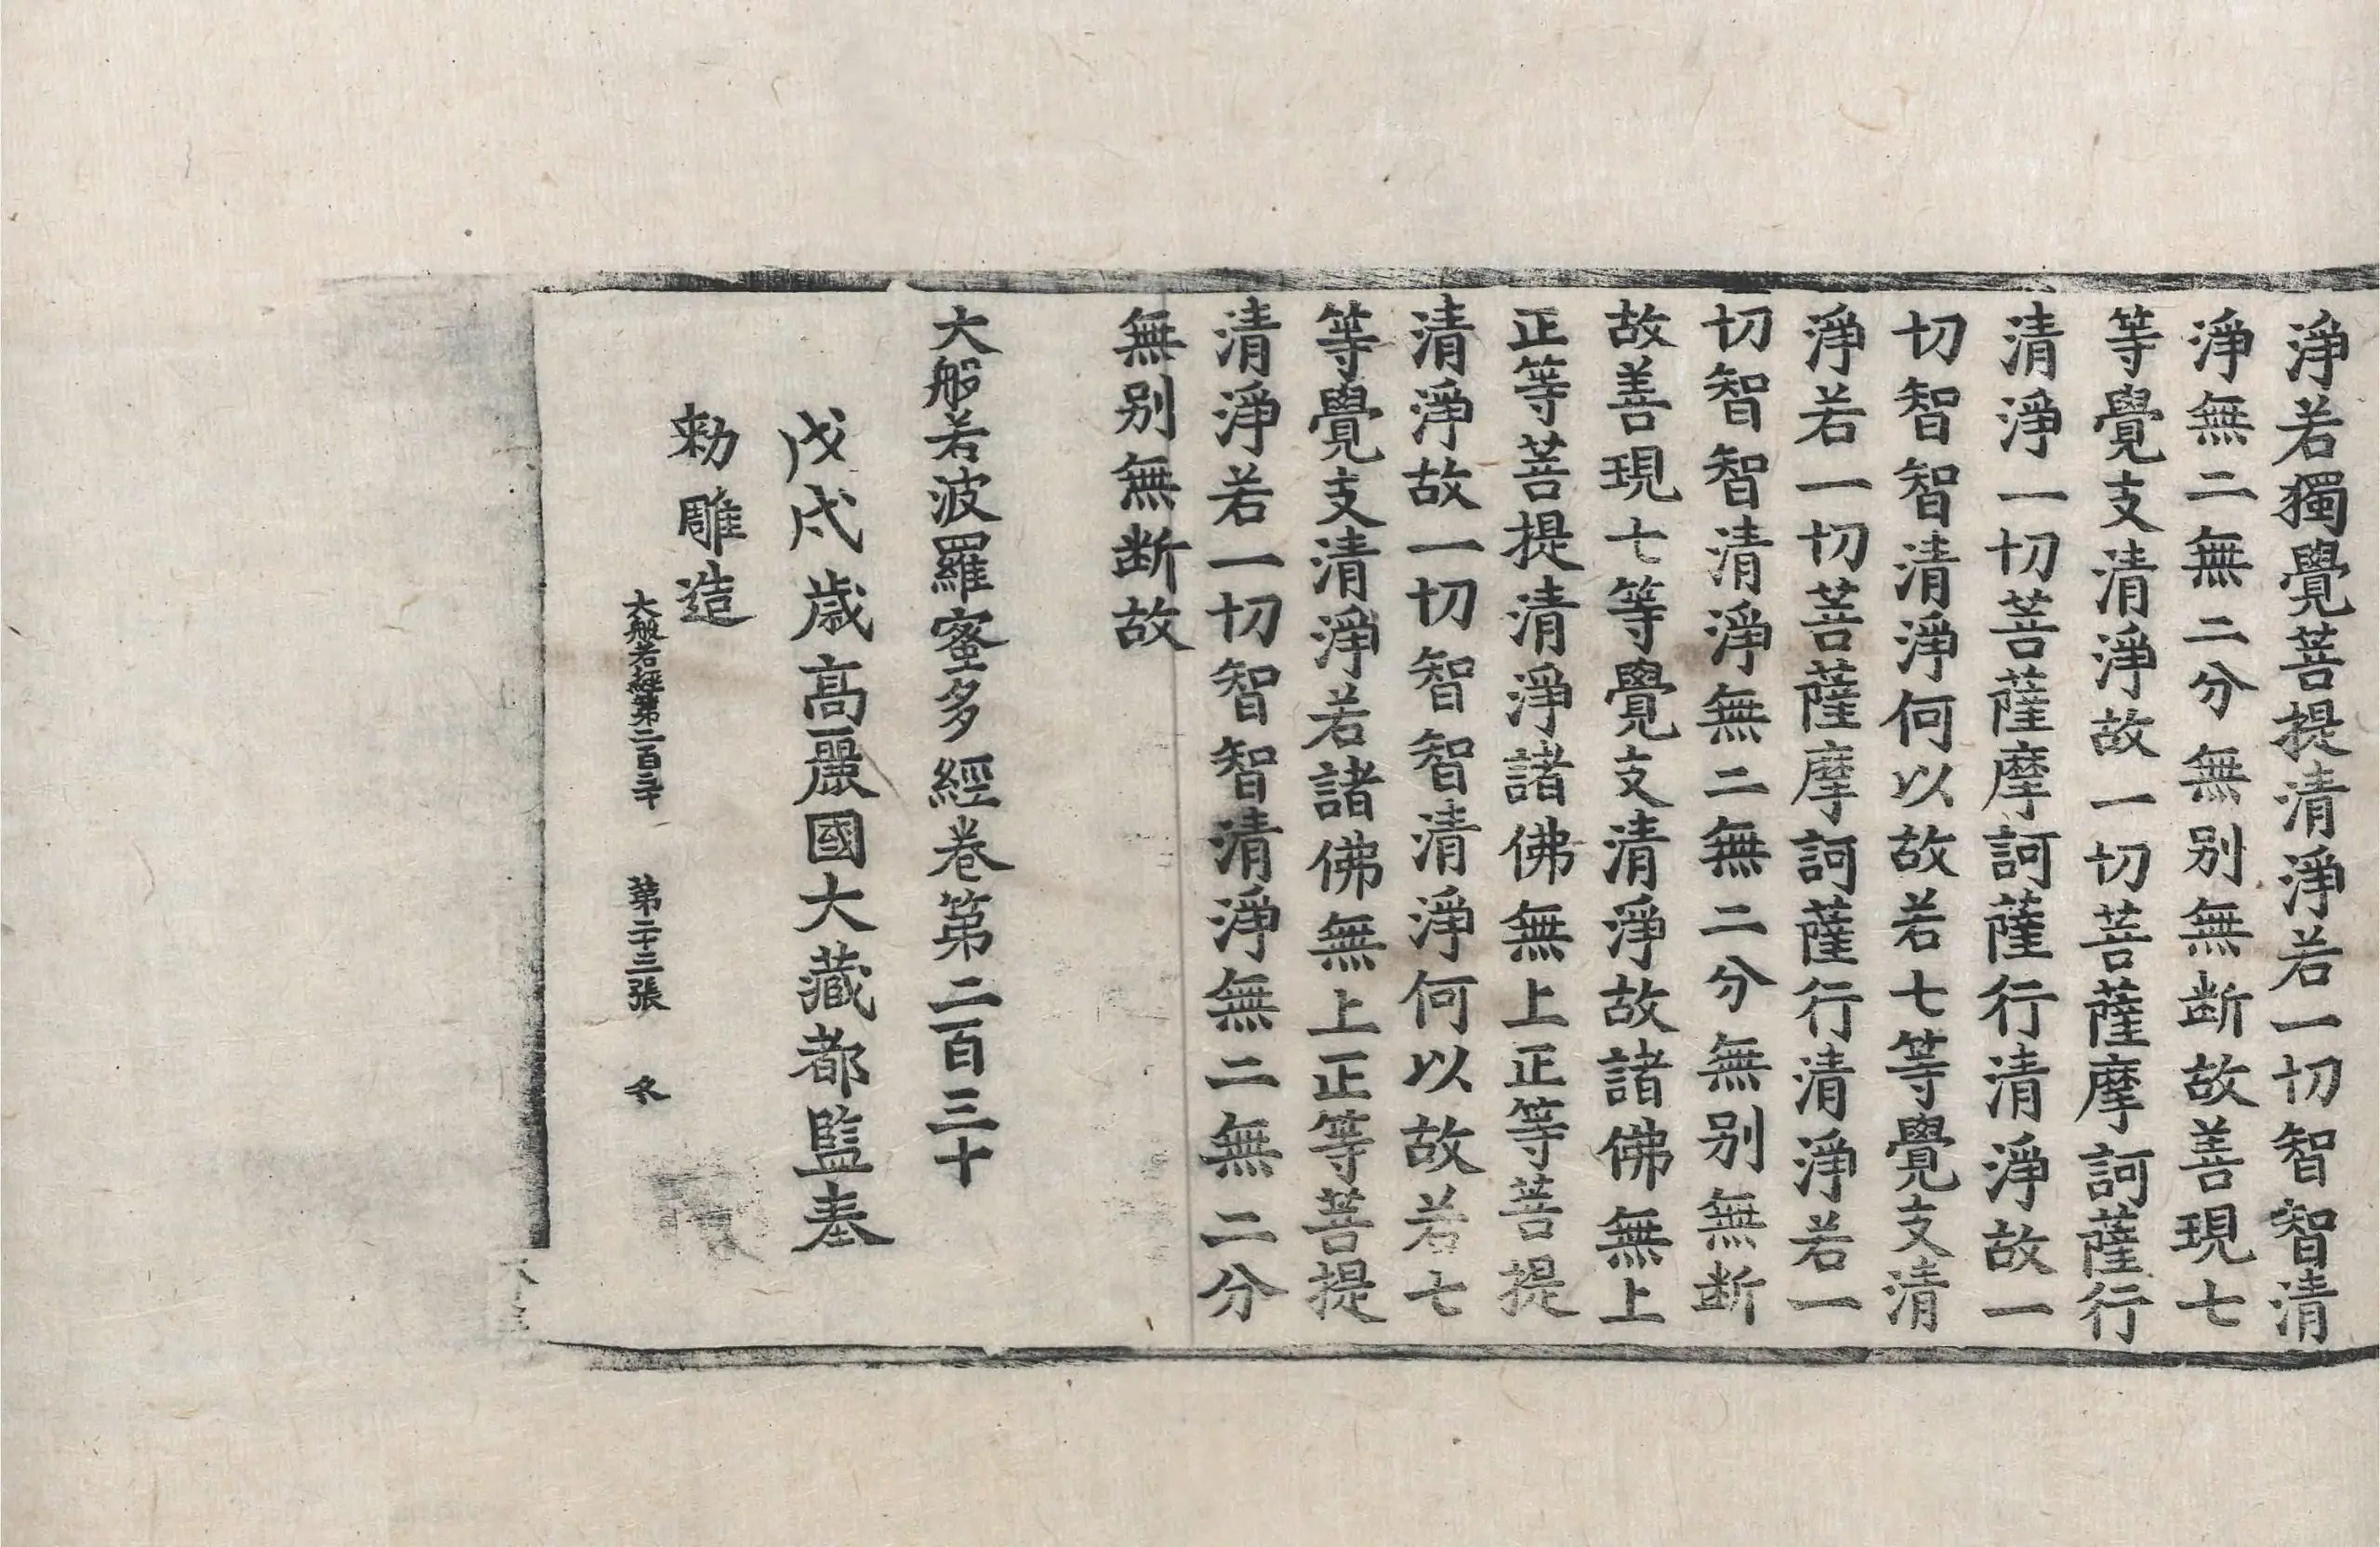 淨若獨覺菩提清淨若一切智智清
淨無二無二分無別無断故善現七
等覺支清淨故一切菩薩摩訶薩行
清淨一切菩薩摩訶薩行清淨故一
切智智清淨何以故若七等覺支清
淨若一切菩薩摩訶薩行清淨若一
切智智清淨無二無二分無別無断
故善現七等覺支清淨故諸佛無上
正等菩提清淨諸佛無上正等菩提
清淨故一切智智清淨何以故若七
等覺支清淨若諸佛無上正等菩提
清淨若一切智智清淨無二無二分
無別無断故
大般若波羅蜜多經卷第二百三十
戊戌歲高麗國大藏都監奉
勑雕造
大般若經第二百三十 第二十三張 冬